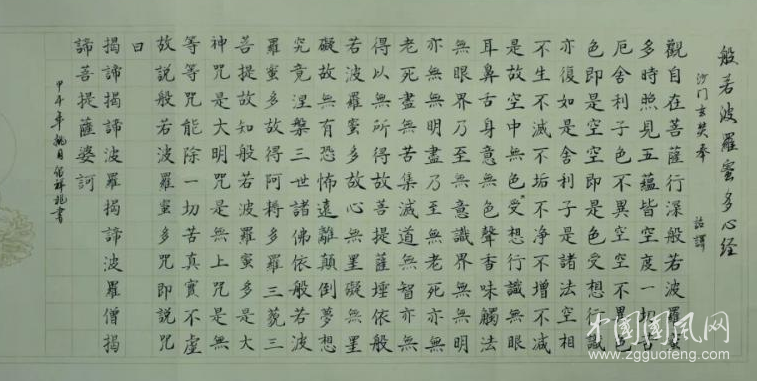 般若波羅蜜多心经
沙门玄奘奉 詔譯
觀自在菩薩行深般若波羅蜜
多時照見五蘊皆空度一切苦
厄舍利子色不異空空不異色
色即是空空即是色受想行識
亦復如是舍利子是諸法空相
不生不滅不垢不净不增不减
是故空中無色受想行識無眼
耳鼻舌身意無色聲香味觸法
無眼界乃至無意識界無無明
亦無無明盡乃至無老死亦無
老死盡無苦集滅道無智亦無
得以無所得故菩提薩埵依般
若波羅蜜多故心無罣礙無罣
礙故無有恐怖遠離顛倒夢想
究竟涅槃三世諸佛依般若波
羅蜜多故得阿耨多羅三藐三
菩提故知般若波羅蜜多是大
神咒是大明咒是無上咒是無
等等咒能除一切苦真實不虛
故説般若波羅蜜多咒即説咒
曰
揭諦揭諦波羅揭諦波羅僧揭
諦菩提薩婆訶
甲午年 書
中国国风网
www.zgguofeng.com